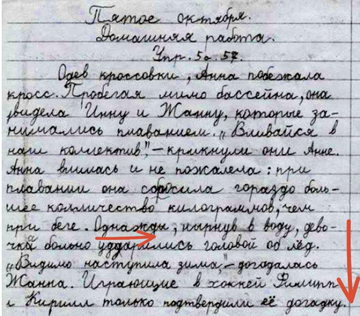 Пятое октября.
Домашняя работа.
Упр. 5а 57.
Одев кроссовки, Анна побежала
кросс. Пробегая мимо бассейна, она
увидела Инну и Жанну, которые за-
нимались плаванием. „Вливайся в
наш коллектив", – крикнули они Анне.
Анна влилась и не пожалела: при
плавании она сбросила гораздо боль-
шее количество килограммов, чем
при беге. Однажды, нырнув в воду, дево-
чки больно ударились головой об лёд.
„Видимо наступила зима", – догадалась
Жанна. Играющие в хоккей Филипп
и Кирилл только подтвердили её догадку.